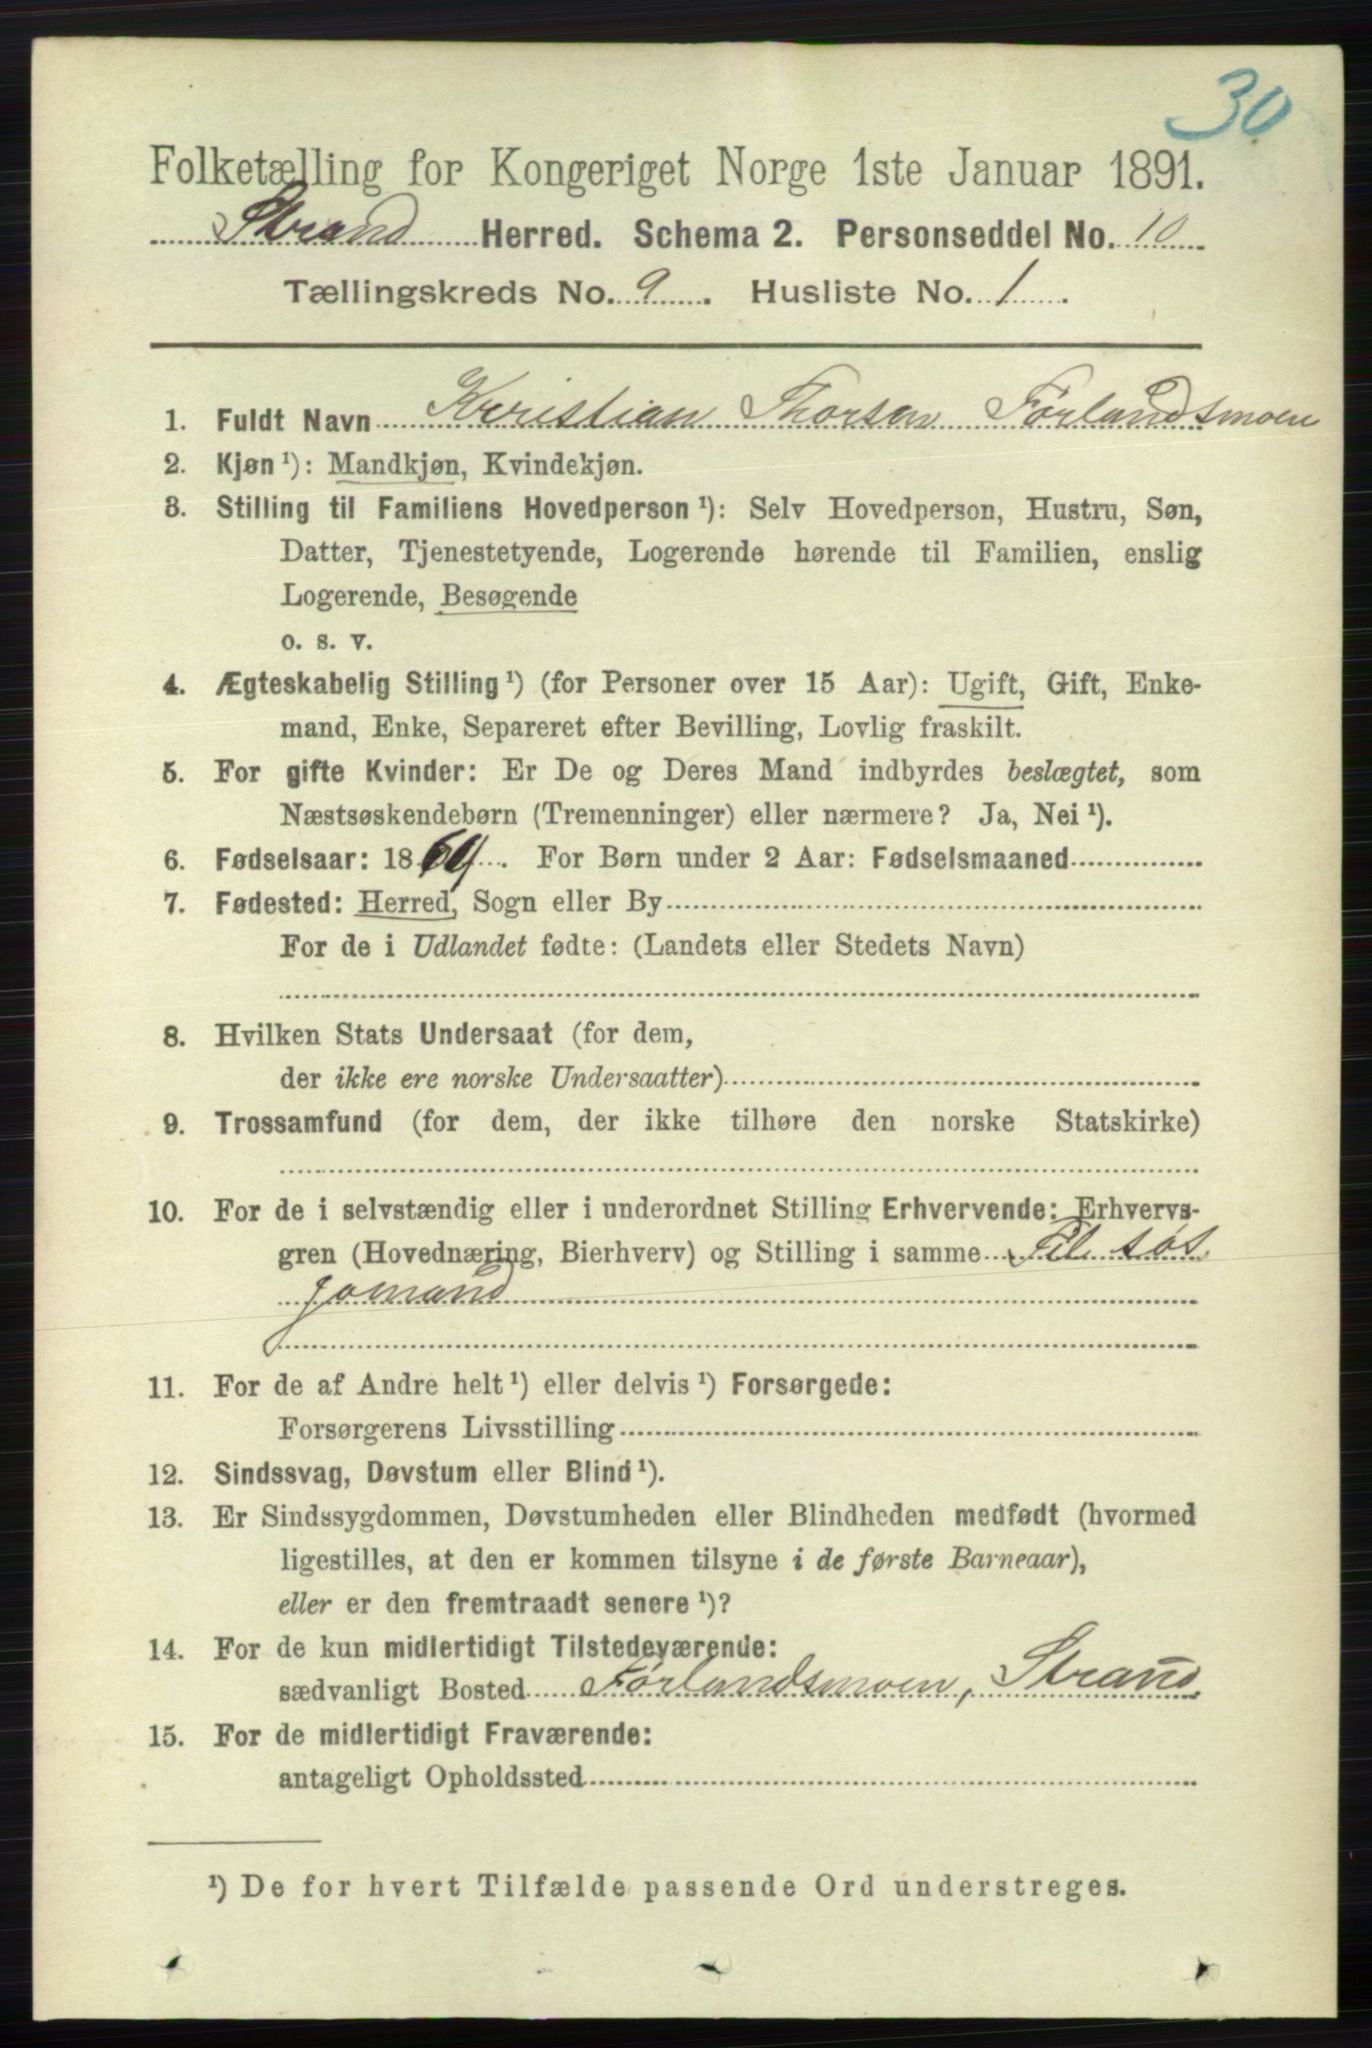 30
Folketælling for Kongeriget Norge 1ste Januar 1891.
Strand Herred. Schema 2. Personseddel No. 10
Tællingskreds No. 9. Husliste No. 1.
1. Fuldt Navn Kristian Thorsen Førlandsmoen
2. Kjøn ¹): Mandkjøn, Kvindekjøn.
3. Stilling til Familiens Hovedperson ¹): Selv Hovedperson, Hustru, Søn,
Datter, Tjenestetyende, Logerende hørende til Familien, enslig
Logerende, Besøgende
o. s. v.
4. Ægteskabelig Stilling ¹) (for Personer over 15 Aar): Ugift, Gift, Enke-
mand, Enke, Separeret efter Bevilling, Lovlig fraskilt.
5. For gifte Kvinder: Er De og Deres Mand indbyrdes beslægtet, som
Næstsøskendebørn (Tremenninger) eller nærmere? Ja, Nei ¹).
6. Fødselsaar: 1864. For Børn under 2 Aar: Fødselsmaaned
7. Fødested: Herred, Sogn eller By
For de i Udlandet fødte: (Landets eller Stedets Navn)
8. Hvilken Stats Undersaat (for dem,
der ikke ere norske Undersaatter)
9. Trossamfund (for dem, der ikke tilhøre den norske Statskirke)
10. For de i selvstændig eller i underordnet Stilling Erhvervende: Erhvervs-
gren (Hovednæring, Bierhverv) og Stilling i samme Til søs
Jomand
11. For de af Andre helt ¹) eller delvis ¹) Forsørgede:
Forsørgerens Livsstilling
12. Sindssvag, Døvstum eller Blind ¹).
13. Er Sindssygdommen, Døvstumheden eller Blindheden medfødt (hvormed
ligestilles, at den er kommen tilsyne i de første Barneaar),
eller er den fremtraadt senere ¹)?
14. For de kun midlertidigt Tilstedeværende:
sædvanligt Bosted Førlandsmoen, Strand.
15. For de midlertidigt Fraværende:
antageligt Opholdssted
¹) De for hvert Tilfælde passende Ord understreges.